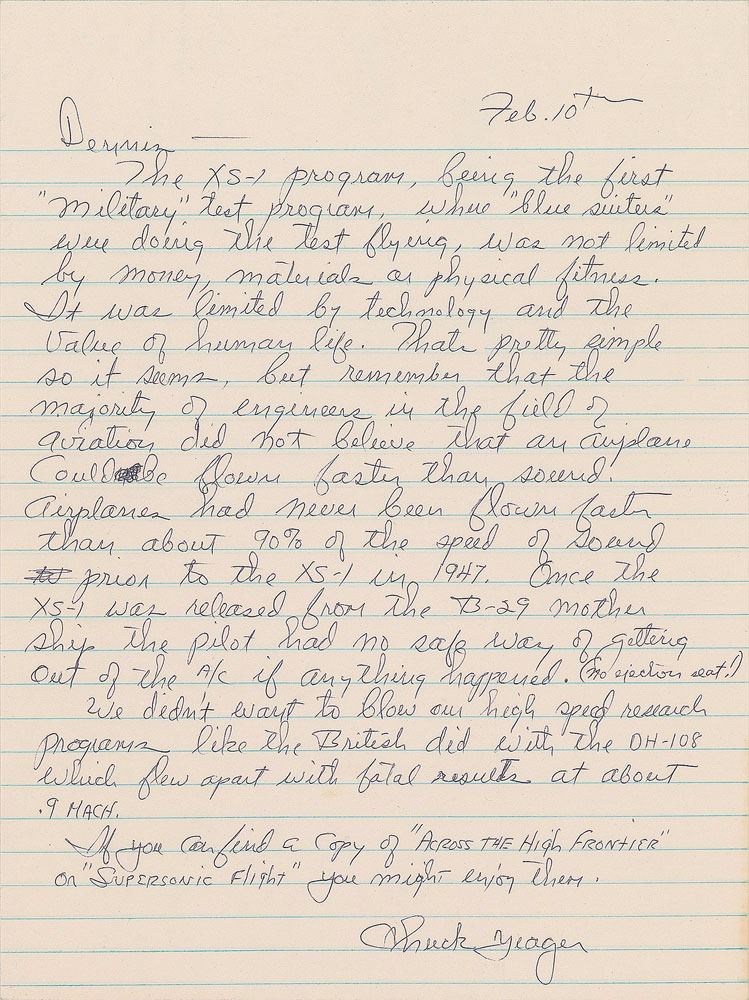 Feb. 10th
Dennis —
The XS-1 program, being the first
"Military" test program, where "blue suiters"
were doing the test flying, was not limited
by money, materials or physical fitness.
It was limited by technology and the
Value of human life. Thats pretty simple
so it seems, but remember that the
majority of engineers in the field of
aviation did not believe that an airplane
Could be flown faster than sound.
Airplanes had never been flown faster
than about 90% of the speed of sound
prior to the XS-1 in 1947. Once the
XS-1 was released from the B-29 mother
ship the pilot had no safe way of getting
out of the A/C if anything happened. (no ejection seat!)
We didn't want to blow our high speed research
programs like the British did with the DH-108
which flew apart with fatal results at about
.9 MACH.
If you can find a Copy of "ACROSS THE HIgh FRONTIER"
or "SUPERSONIC Flight" you might enjoy them.
Chuck Yeager